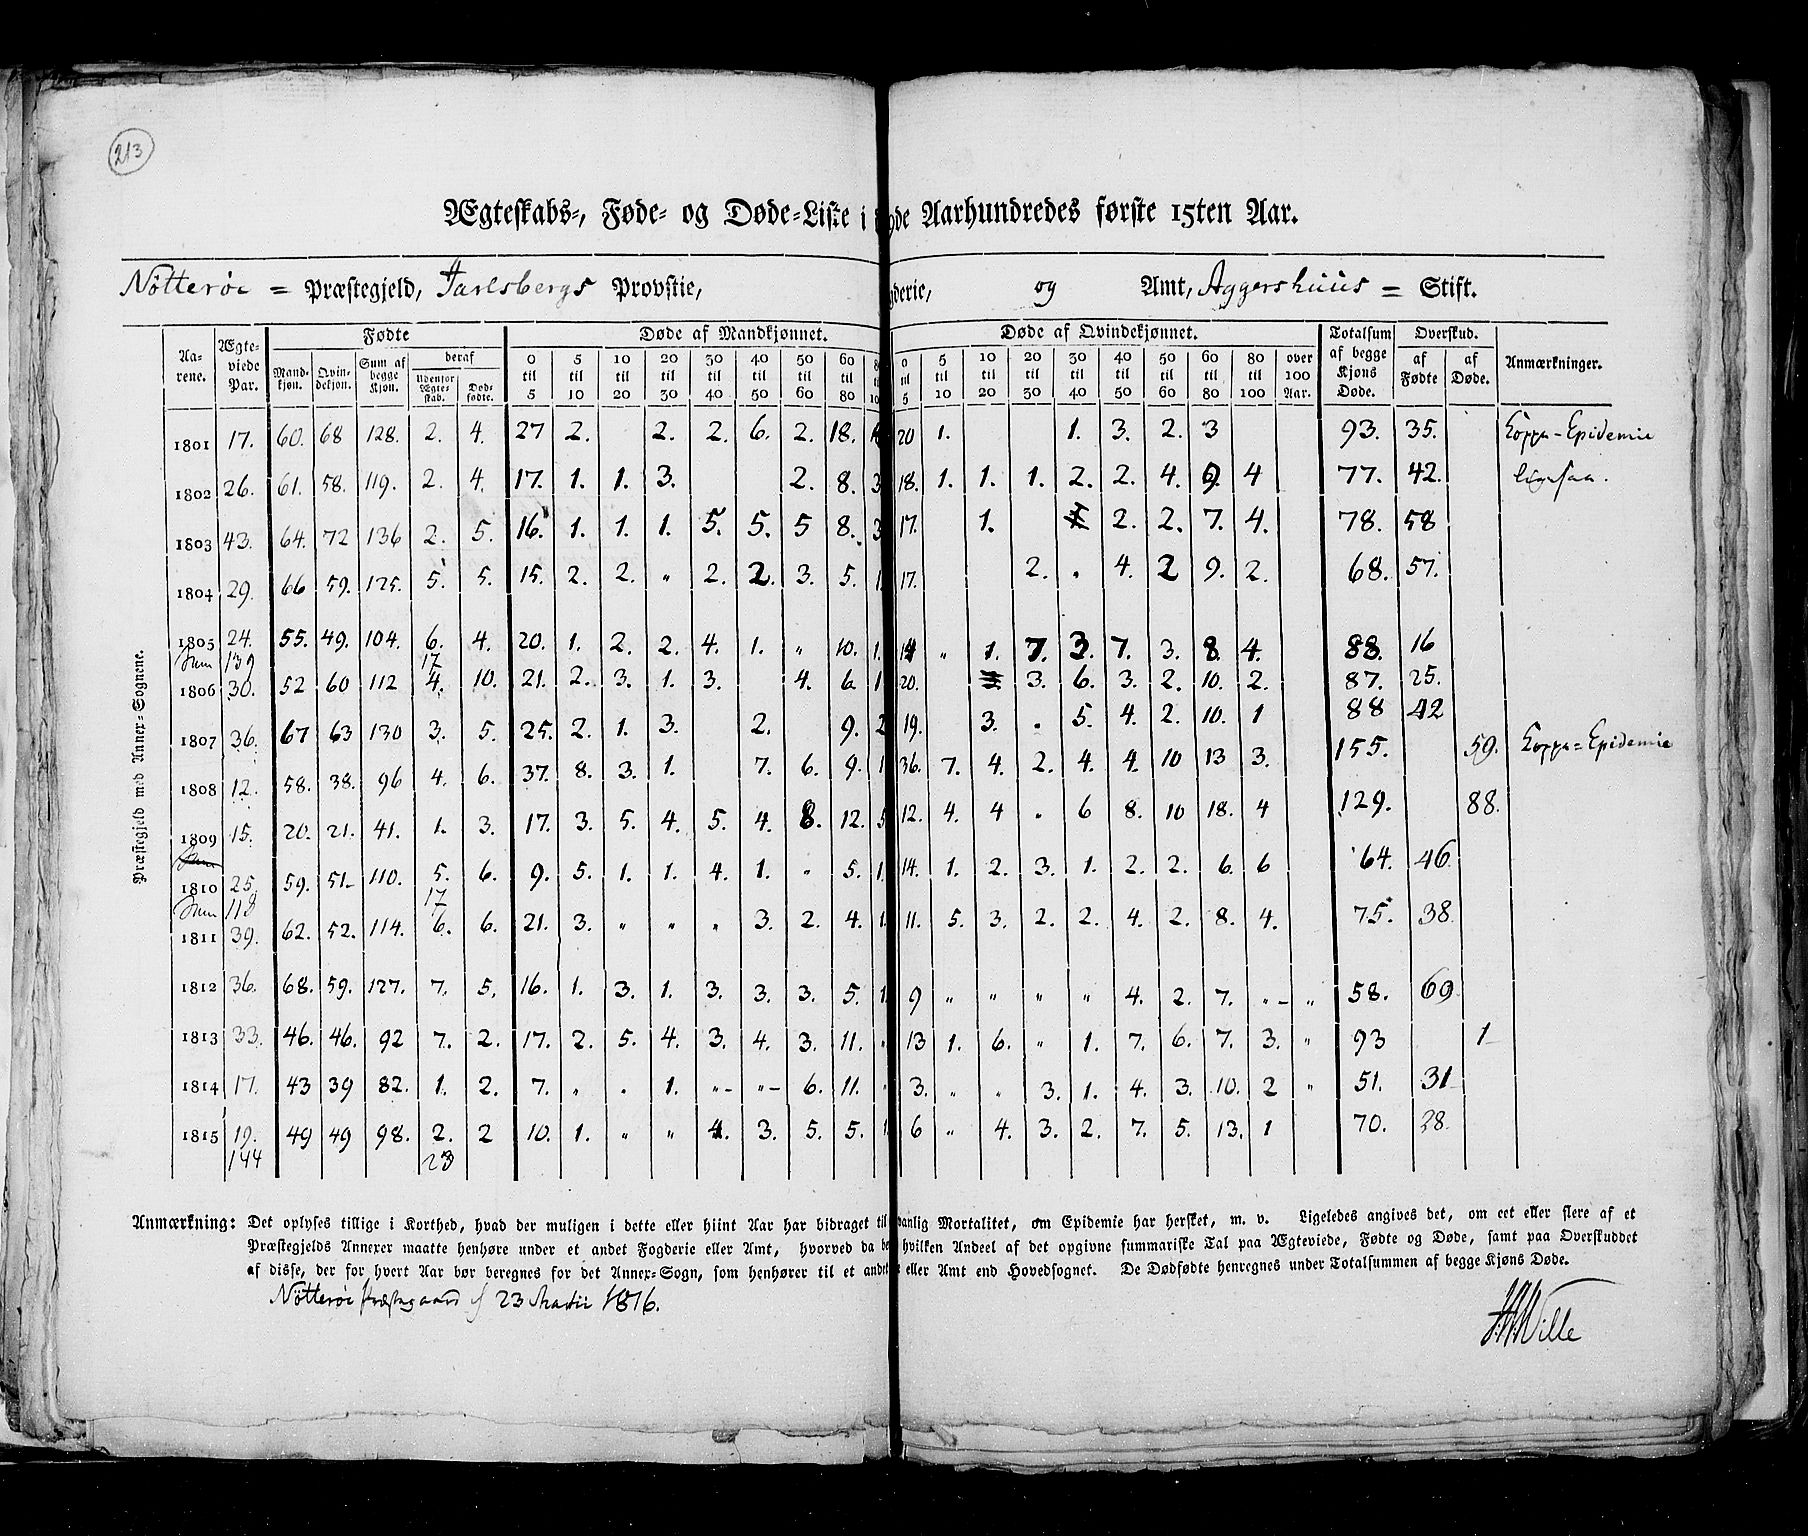 213
Ægteskabs-, Føde- og Døde-Liste i yde Aarhundredes første 15ten Aar.
Nötteröe = Præstegjeld, Jarlsbergs Provstie, gderie, og Amt, Aggershuus = Stift.
Aa- rene. Ægte- viede Par. Fødte Døde af Mandkjønnet. Døde af Qvindekjønnet. Totalsum af begge Kjøns Døde. Overskud. Anmærkninger.
Mand- kjøn. Qvin- dekjøn. Sum af begge Kjøn. deraf Udenfor Ægte- skab. Død- fødte. 0 til 5 5 til 10 10 til 20 20 til 30 30 til 40 40 til 50 50 til 60 60 til 80 0 til 5 5 til 10 10 til 20 20 til 30 30 til 40 40 til 50 50 til 60 60 til 80 80 til 100 over 100 Aar. af Fødte af Døde.
Præstegjeld med Annex-Sognene.
1801 17. 60. 68 128. 2. 4. 27 2. 2. 2. 6. 2. 18. 20 1. 1. 3. 2. 3 93. 35. Koppe-Epidemie
1802 26. 61. 58. 119. 2. 4. 17. 1. 1. 3. 2. 8. 3 18. 1. 1. 1. 2. 2. 4. 9. 4 77. 42. ligesaa.
1803 43. 64. 72 136 2. 5. 16. 1. 1. 1. 5. 5. 5 8. 3 17. 1. 2. 2. 7. 4. 78. 58
1804 29. 66 59. 125. 5. 5. 15. 2. 2. " 2. 2. 3. 5. 1. 17. 2. " 4. 2 9. 2. 68. 57.
1805 24. 55. 49. 104. 6. 4. 20. 1. 2. 2. 4. 1. " 10. 1. 14 " 1. 7. 3. 7. 3. 8. 4. 88. 16
Sum 139 17
1806 30. 52 60 112 4. 10. 21. 2. 3. 1. 3. 4. 6 1 20. 3. 6. 3. 2. 10. 2. 87. 25.
1807 36. 67 63 130 3. 5. 25. 2. 1. 3. 2. 9. 2 19. 3. " 5. 4. 2. 10. 1 88 42
1808 12. 58. 38. 96 4. 6. 37. 8. 3. 1. 7. 6. 9. 1 36. 7. 4. 2. 4. 4. 10 13 3. 155. 59. Koppe=Epidemie
1809 15. 20. 21. 41. 1. 3. 17. 3. 5. 4. 5. 4. 8. 12. 5 12. 4. 4 " 6 8. 10 18. 4 129. 88.
Sum
1810 25. 59. 51. 110. 5. 6. 9. 5. 1. 1. 4. 1. " 5. 1. 14. 1. 2. 3. 1. 2. 2. 6. 6 64. 46.
Sum 118 17
1811 39. 62. 52. 114. 6. 6. 21. 3. " " " 3. 2. 4. 1. 11. 5. 3. 2. 2. 4. 2. 8. 4. 75. 38.
1812 36. 68. 59. 127. 7. 5. 16. 1. 3. 1. 3. 3. 3. 5. 1. 9 " " " " 4. 2. 7. " " 58. 69
1813 33. 46. 46. 92 7. 2. 17. 2. 5. 4. 3. 4. 3. 11. " 13 1. 6. " 1. 7. 6. 7. 3. " 93 1
1814 17. 43 39 82. 1. 2. 7. " " 1. " " 6. 11. " 3. " " 3. 1. 4. 3. 10. 2 " 51. 31
1815 19. 49 49 98. 2. 2 10. 1. " " 4. 3. 5. 5. 1 6 " 4. 3. 2. 7. 5. 13. 1 70. 28.
144 23
Anmærkning: Det oplyses tillige i Korthed, hvad der muligen i dette eller hiint Aar har bidraget til vanlig Mortalitet, om Epidemie har hersket, m. v. Ligeledes angives det, om eet eller flere af et
Præstegjelds Annexer maatte henhøre under et andet Fogderie eller Amt, hvorved da be hvilken Andeel af det opgivne summariske Tal paa Ægteviede, Fødte og Døde, samt paa Overskuddet
af disse, der for hvert Aar bør beregnes for det Annex-Sogn, som henhører til et andet eller Amt end Hovedsognet. De Dødfødte henregnes under Totalsummen af begge Kjøns Døde.
Nötteröe Præstegaard 23 Martii 1816.
Wille